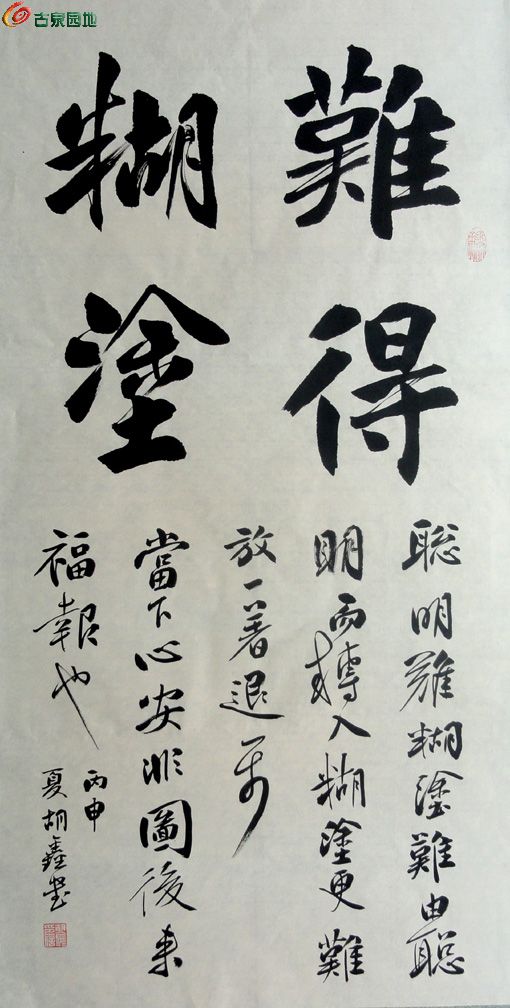 古泉园地
難得
糊塗
聪明難糊塗難由聪
明而轉入糊塗更難
放一著退一步
當下心安非圖後来
福報也
丙申
夏胡鑫書